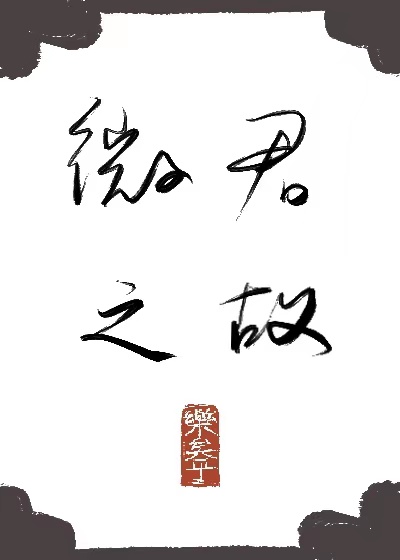 微君
之故
樂